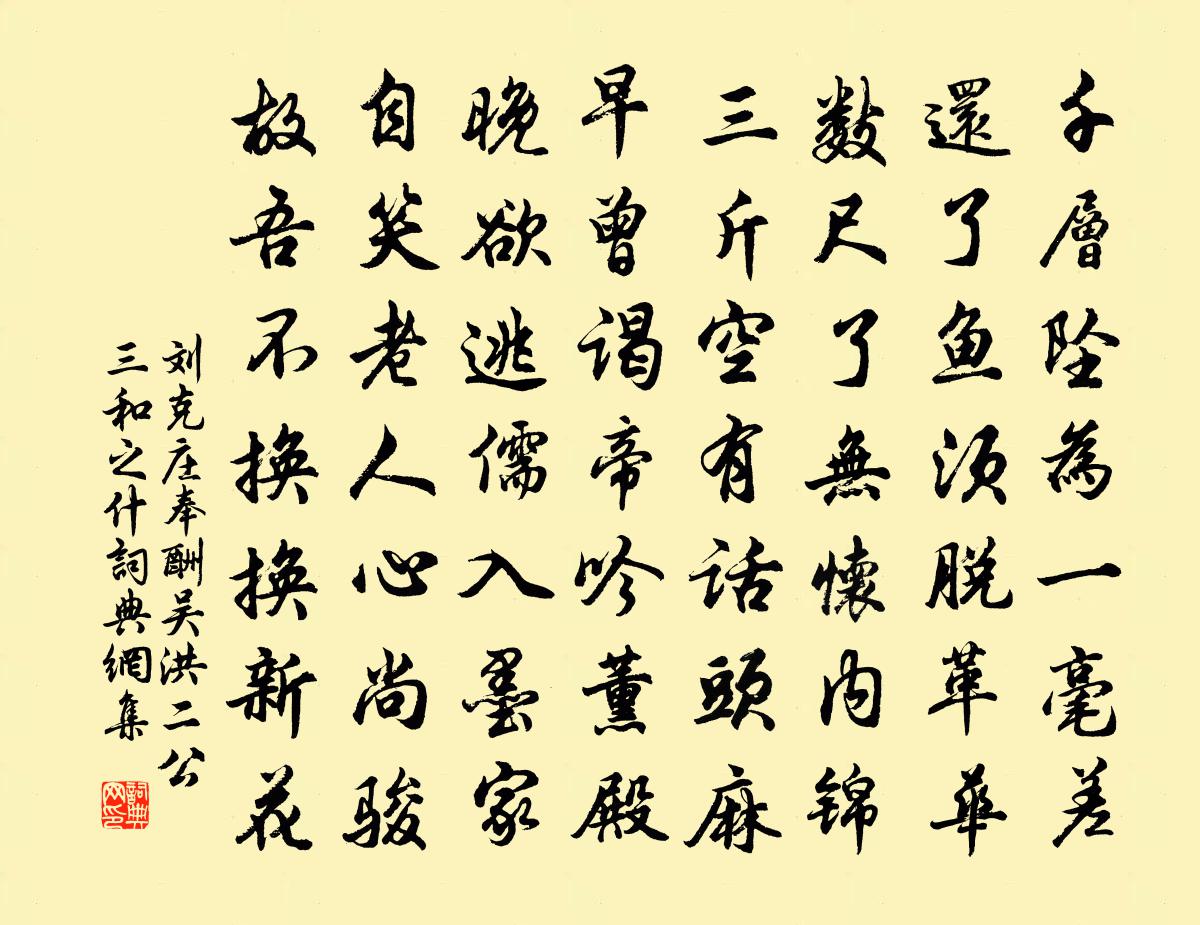 千層坠為一毫差
還了魚須脱革華
數尺了無懷内錦
三斤空有話頭麻
早曾谒帝吟薫殿
晚欲逃儒入墨家
自笑老人心尚骏
故吾不换换新花
刘克庄奉酬吴洪二公
三和之什詞典網集
詞典
网印